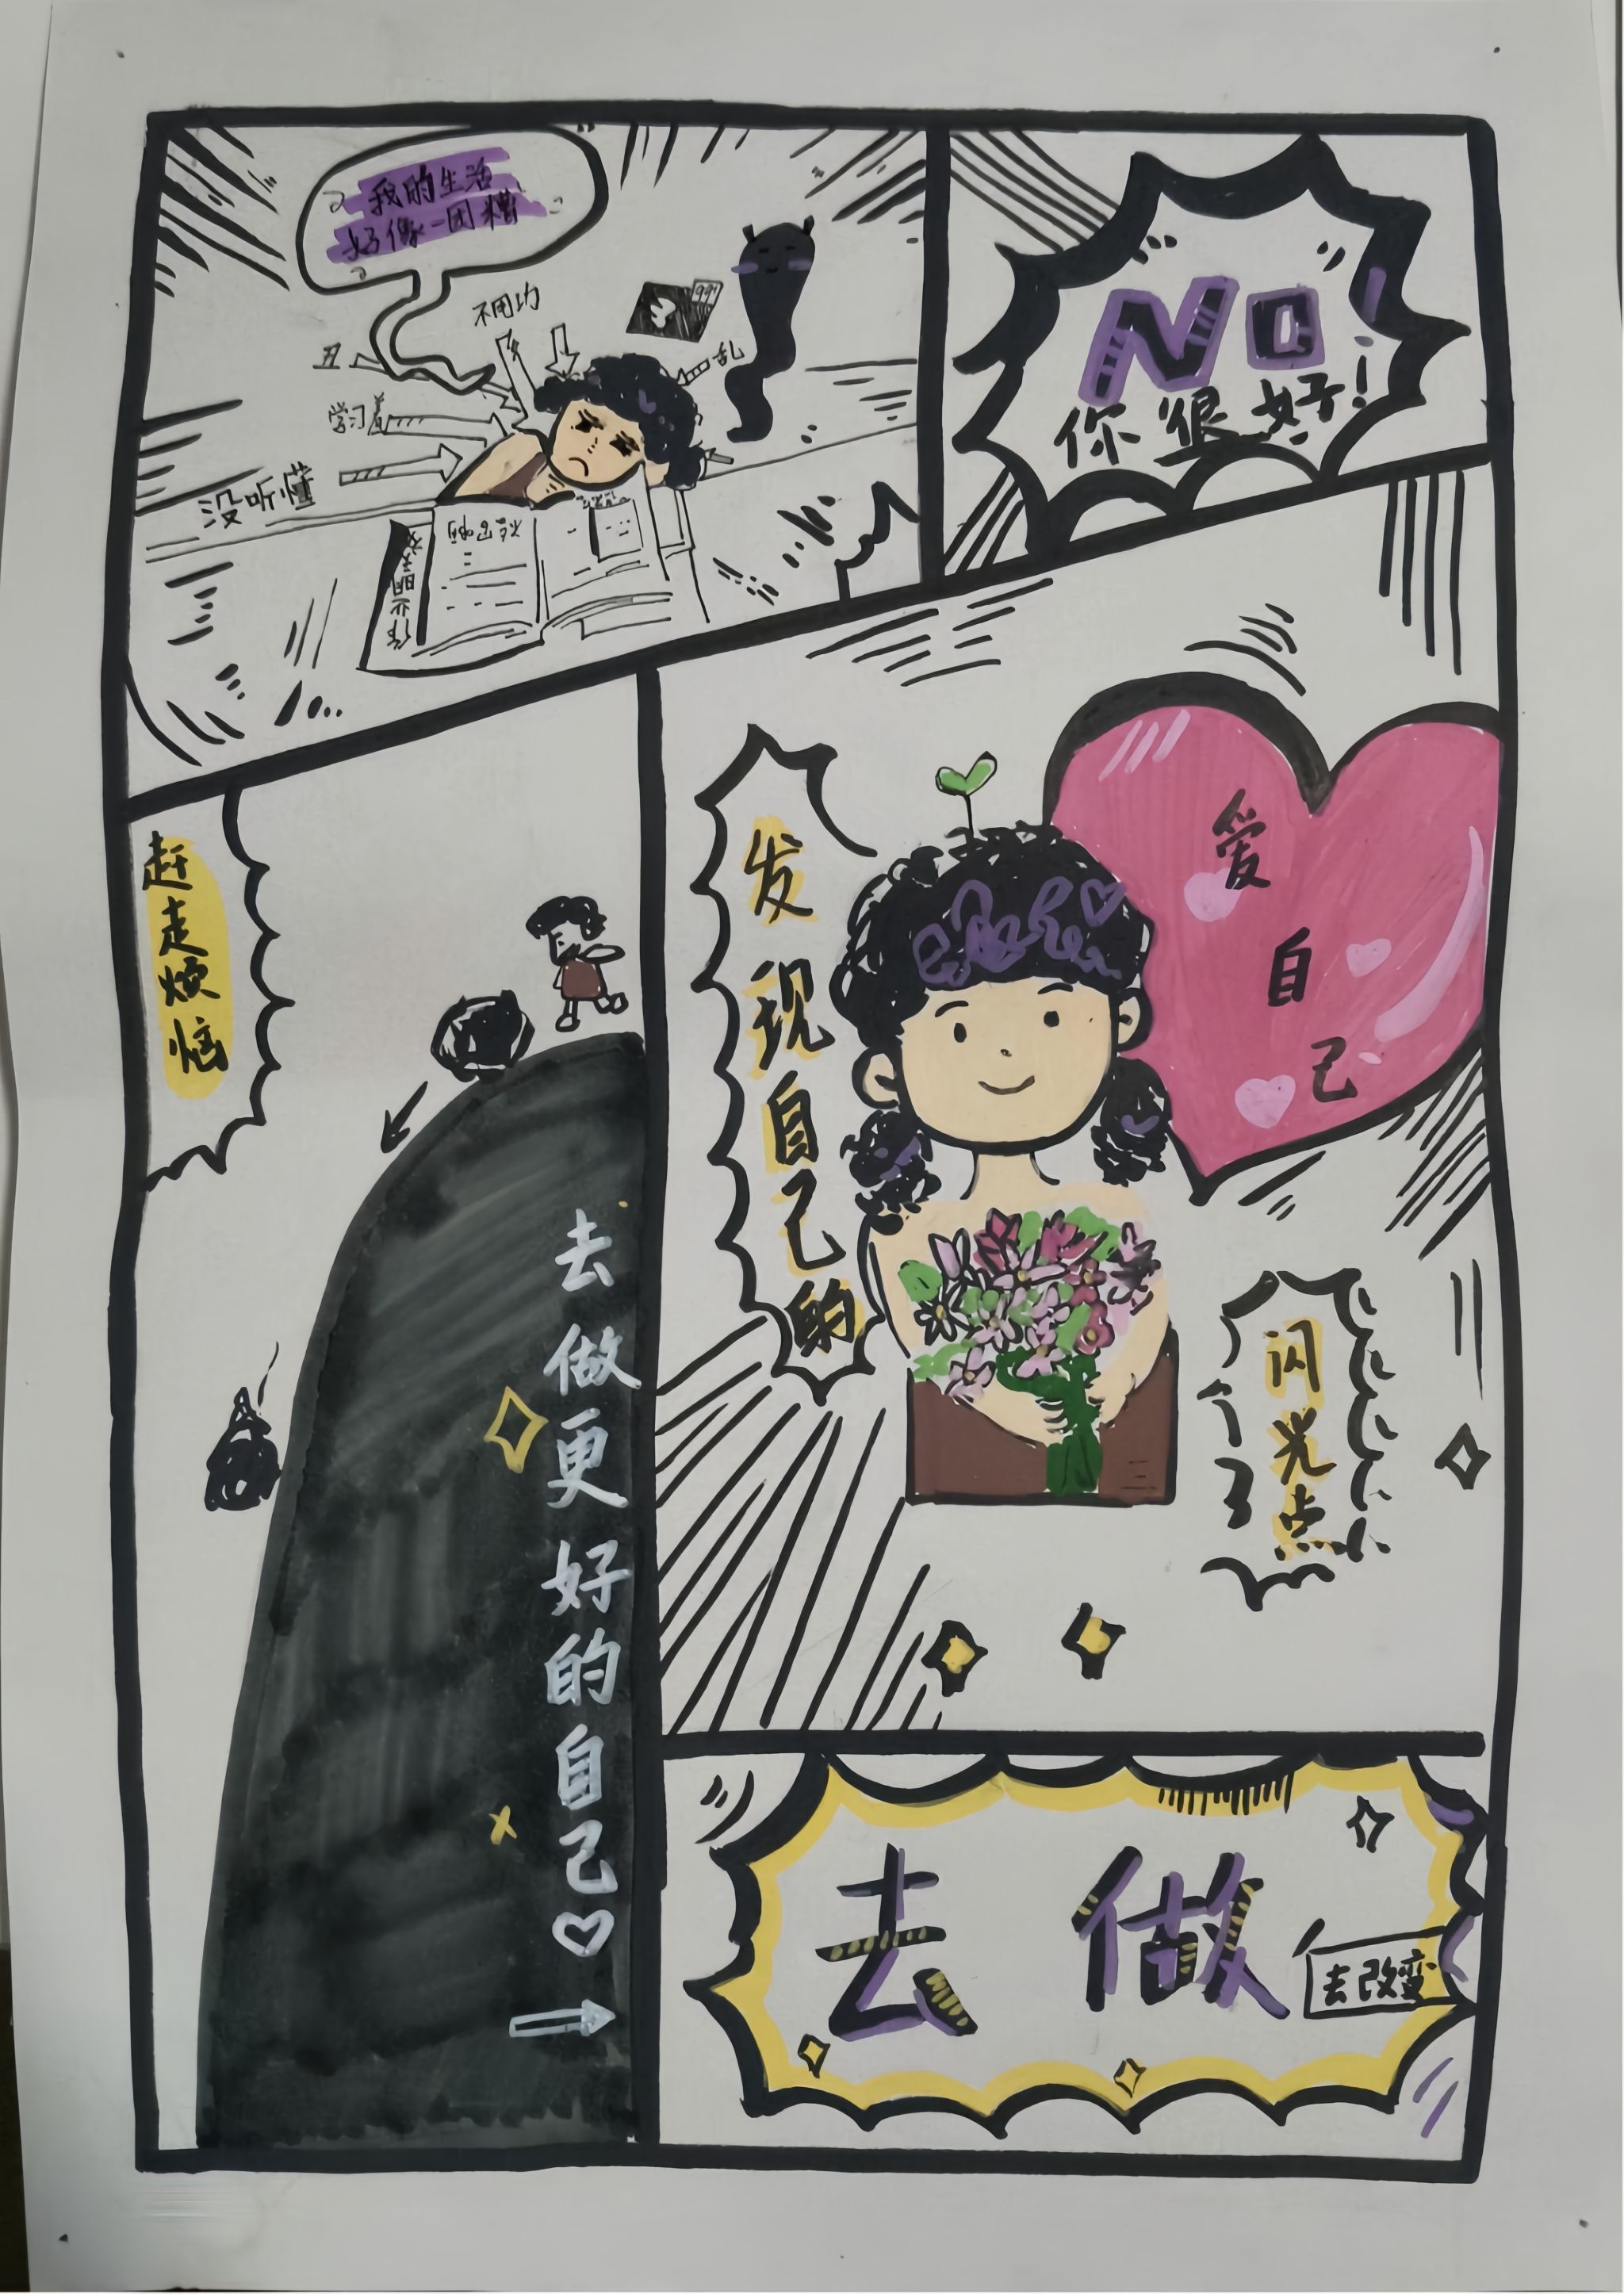 我的生活
好像一团糟
不用功
丑
乱
学习差
没听懂
NO
你很好！
赶走烦恼
去做更好的自己
发现自己的
爱自己
闪光点
去做
去改变